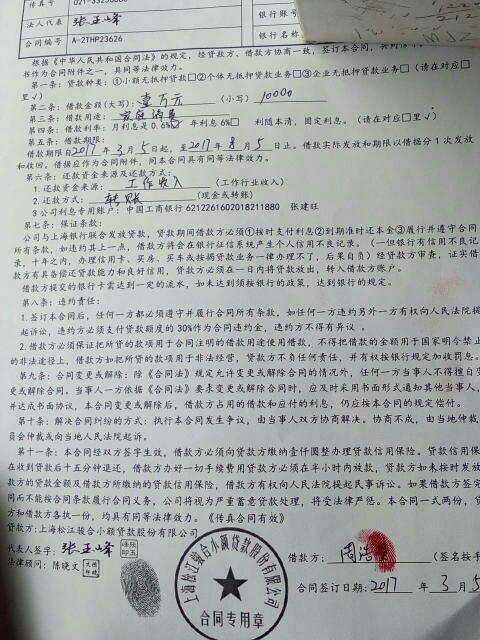 传真号 021-33250866
法人代表 张正峰 银行账号
合同编号 A-2THP23626 银行名称
根据《中华人民共和国合同法》的规定，经贷款方、借款方协商一致，签订本合同，
书作为合同附件之一，具同等法律效力。
第一条：贷款种类：①小额无抵押贷款□②个体无抵押贷款业务□③企业无抵押贷款业务□（请在对应□
里√）
第二条：借款金额(大写)：壹万元 （小写）10000
第三条：借款用途：家庭消费
第四条：借款利率：月利息是0.6% 年利息6%□ 利随本清，固定利息。（请在对应□里√）
第五条：借款期限：
借款期限自2017年3月5日起，至2017年8月5日止。借款实际发放和期限以借据分1次发放
和收回。借据应作为合同附件，同本合同具有同等法律效力。
第六条：还款资金来源及还款方式：
1.还款资金来源：工作收入（工作行业收入）
2.还款方式：转账（现金或转账）
3公司利息专用账户：中国工商银行 6212261602018211880 张建旺
第七条：保证条款：
公司与上海银行联合发放贷款，贷款期间借款方必须①按时支付利息②到期准时还本金③履行并遵守合同
所有条款，如违约其上一点，借款方将会在银行征信系统产生个人信用不良记录。（一但银行有信用不良记
录，十年之内，办理信用卡、买房、买车或按揭贷款业务一律办理不了，后果自负）经贷款方审查，证实借
款方有具备偿还贷款能力和良好信用，贷款方必须在一日内将贷款放出，转入借款方账户。
借款方提交的银行卡需达到一定的流水，如未达到须按银行的政策，达到银行的规定。
第八条：违约责任：
1.签订本合同后，任何一方都必须遵守并履行合同所有条款，如任何一方违约另外一方有权向人民法院提
起诉讼，违约方必须支付贷款额度的30%作为合同违约金，违约方不得有异议。
2.借款方必须保证把所贷的款项用于合同注明的借款用途使用借款，不得把借款的金额用于国家明令禁止
的非法途径上，借款方如把所贷的款项用于非法经营，贷款方不负任何责任，并有权按银行规定加收罚息。
第九条：合同变更或解除：除《合同法》规定允许变更或解除合同的情况外，任何一方当事人不得擅自变
更或解除合同。当事人一方依据《合同法》要求变更或解除合同时，应及时采用书面形式通知其他当事人，
并达成书面协议，本合同变更或解除后，借款方占用的借款和应付的利息，仍应按本合同的规定偿付。
第十条：解决合同纠纷的方式：执行本合同发生争议，由当事人双方协商解决。协商不成，由当地仲裁
员会仲裁或向当地人民法院起诉。
第十一条：本合同经双方签字生效，借款方必须向贷款方缴纳壹仟圆整办理贷款信用保险。贷款信用保险
在收到贷款后十五分钟退还，借款方办好一切手续费用贷款方必须在半小时内放款，贷款方如未按时发放
款方的贷款金额及借款方所缴纳的贷款信用保险，借款方有权向人民法院提起民事诉讼。如果借款方签定
同而不能按合同条款履行合同义务，公司将视为严重蓄意贷款处理，将受法律严惩。本合同一式两份，贷
方和借款方各执一份，均具有同等法律效力。《传真合同有效》
贷款方：上海松江骏合小额贷款股份有限公司
代表人签字：张正峰
借款方：周浩 （签名按手
法律顾问：陈晓文
上海松江骏合小额贷款股份有限公司
合同专用章
合同签订日期：2017年3月5